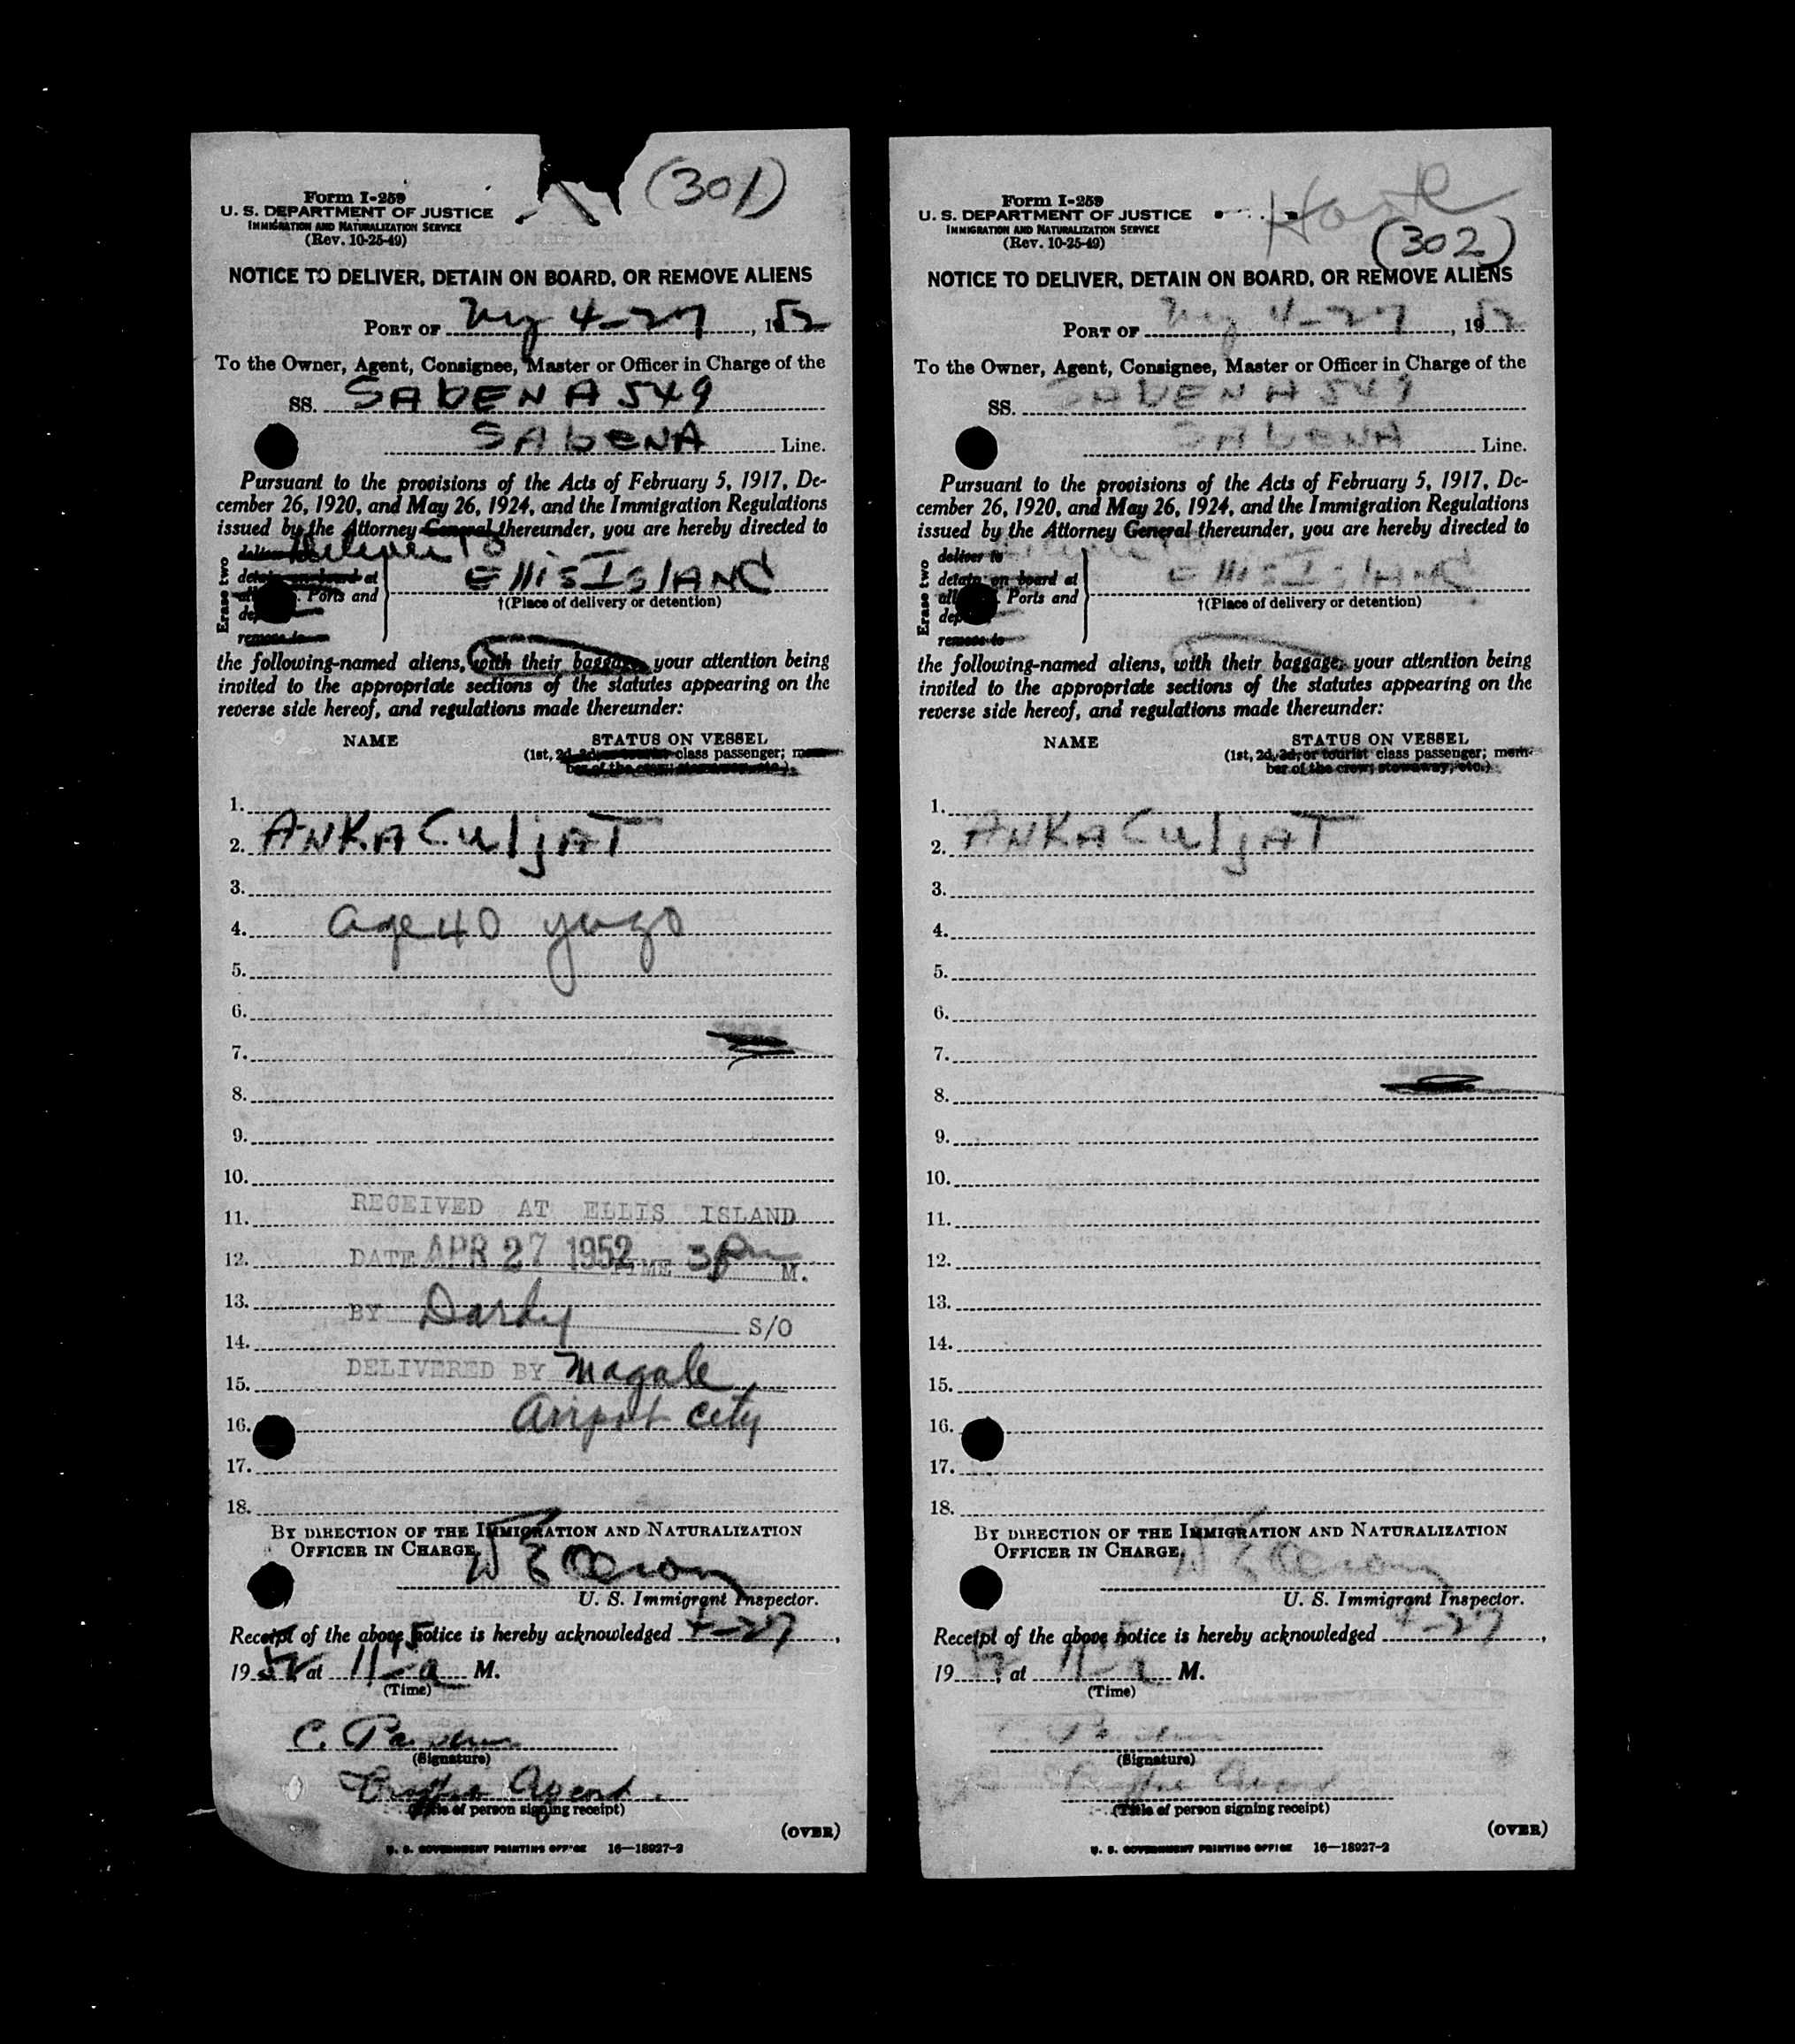 (301)
Form I-259
U. S. DEPARTMENT OF JUSTICE
IMMIGRATION AND NATURALIZATION SERVICE
(Rev. 10-25-49)
NOTICE TO DELIVER, DETAIN ON BOARD, OR REMOVE ALIENS
PORT OF NY 4-27, 1952
To the Owner, Agent, Consignee, Master or Officer in Charge of the
SS. SAbENA 549
SAbENA Line.
Pursuant to the provisions of the Acts of February 5, 1917, De-
cember 26, 1920, and May 26, 1924, and the Immigration Regulations
issued by the Attorney General thereunder, you are hereby directed to
Erase two
deliver to
detain on board at
Ports and
remove to
EllisIslANd
†(Place of delivery or detention)
the following-named aliens, with their baggage, your attention being
invited to the appropriate sections of the statutes appearing on the
reverse side hereof, and regulations made thereunder:
NAME STATUS ON VESSEL
(1st, 2d, 3d, or tourist class passenger; mem-
ber of the crew; stowaway, etc.)
1.
2. ANKA CuljAT
3.
4. age 40 yugo
5.
6.
7.
8.
9.
10.
11. RECEIVED AT ELLIS ISLAND
12. DATE APR 27 1952 TIME 3 Pm M.
13. BY Darby S/O
14.
15. DELIVERED BY Magale
16. Airport City
17.
18.
BY DIRECTION OF THE IMMIGRATION AND NATURALIZATION
OFFICER IN CHARGE,
U. S. Immigrant Inspector.
Receipt of the above notice is hereby acknowledged 4-27,
1952, at 11 15 a M.
(Time)
C.
(Signature)
Agent.
(Title of person signing receipt)
(OVER)
U. S. GOVERNMENT PRINTING OFFICE 16—18927-2
(302)
Form I-259
U. S. DEPARTMENT OF JUSTICE
IMMIGRATION AND NATURALIZATION SERVICE
(Rev. 10-25-49)
NOTICE TO DELIVER, DETAIN ON BOARD, OR REMOVE ALIENS
PORT OF NY 4-27, 1952
To the Owner, Agent, Consignee, Master or Officer in Charge of the
SS. SAbENA 549
SAbENA Line.
Pursuant to the provisions of the Acts of February 5, 1917, De-
cember 26, 1920, and May 26, 1924, and the Immigration Regulations
issued by the Attorney General thereunder, you are hereby directed to
Erase two
deliver to
detain on board at
all Ports and
remove to
EllisIslANd
†(Place of delivery or detention)
the following-named aliens, with their baggage, your attention being
invited to the appropriate sections of the statutes appearing on the
reverse side hereof, and regulations made thereunder:
NAME STATUS ON VESSEL
(1st, 2d, 3d, or tourist class passenger; mem-
ber of the crew; stowaway, etc.)
1.
2. ANKA CuljAT
3.
4.
5.
6.
7.
8.
9.
10.
11.
12.
13.
14.
15.
16.
17.
18.
BY DIRECTION OF THE IMMIGRATION AND NATURALIZATION
OFFICER IN CHARGE,
U. S. Immigrant Inspector.
Receipt of the above notice is hereby acknowledged 4-27,
1952, at 11 15 a M.
(Time)
C.
(Signature)
Agent
(Title of person signing receipt)
(OVER)
U. S. GOVERNMENT PRINTING OFFICE 16—18927-2